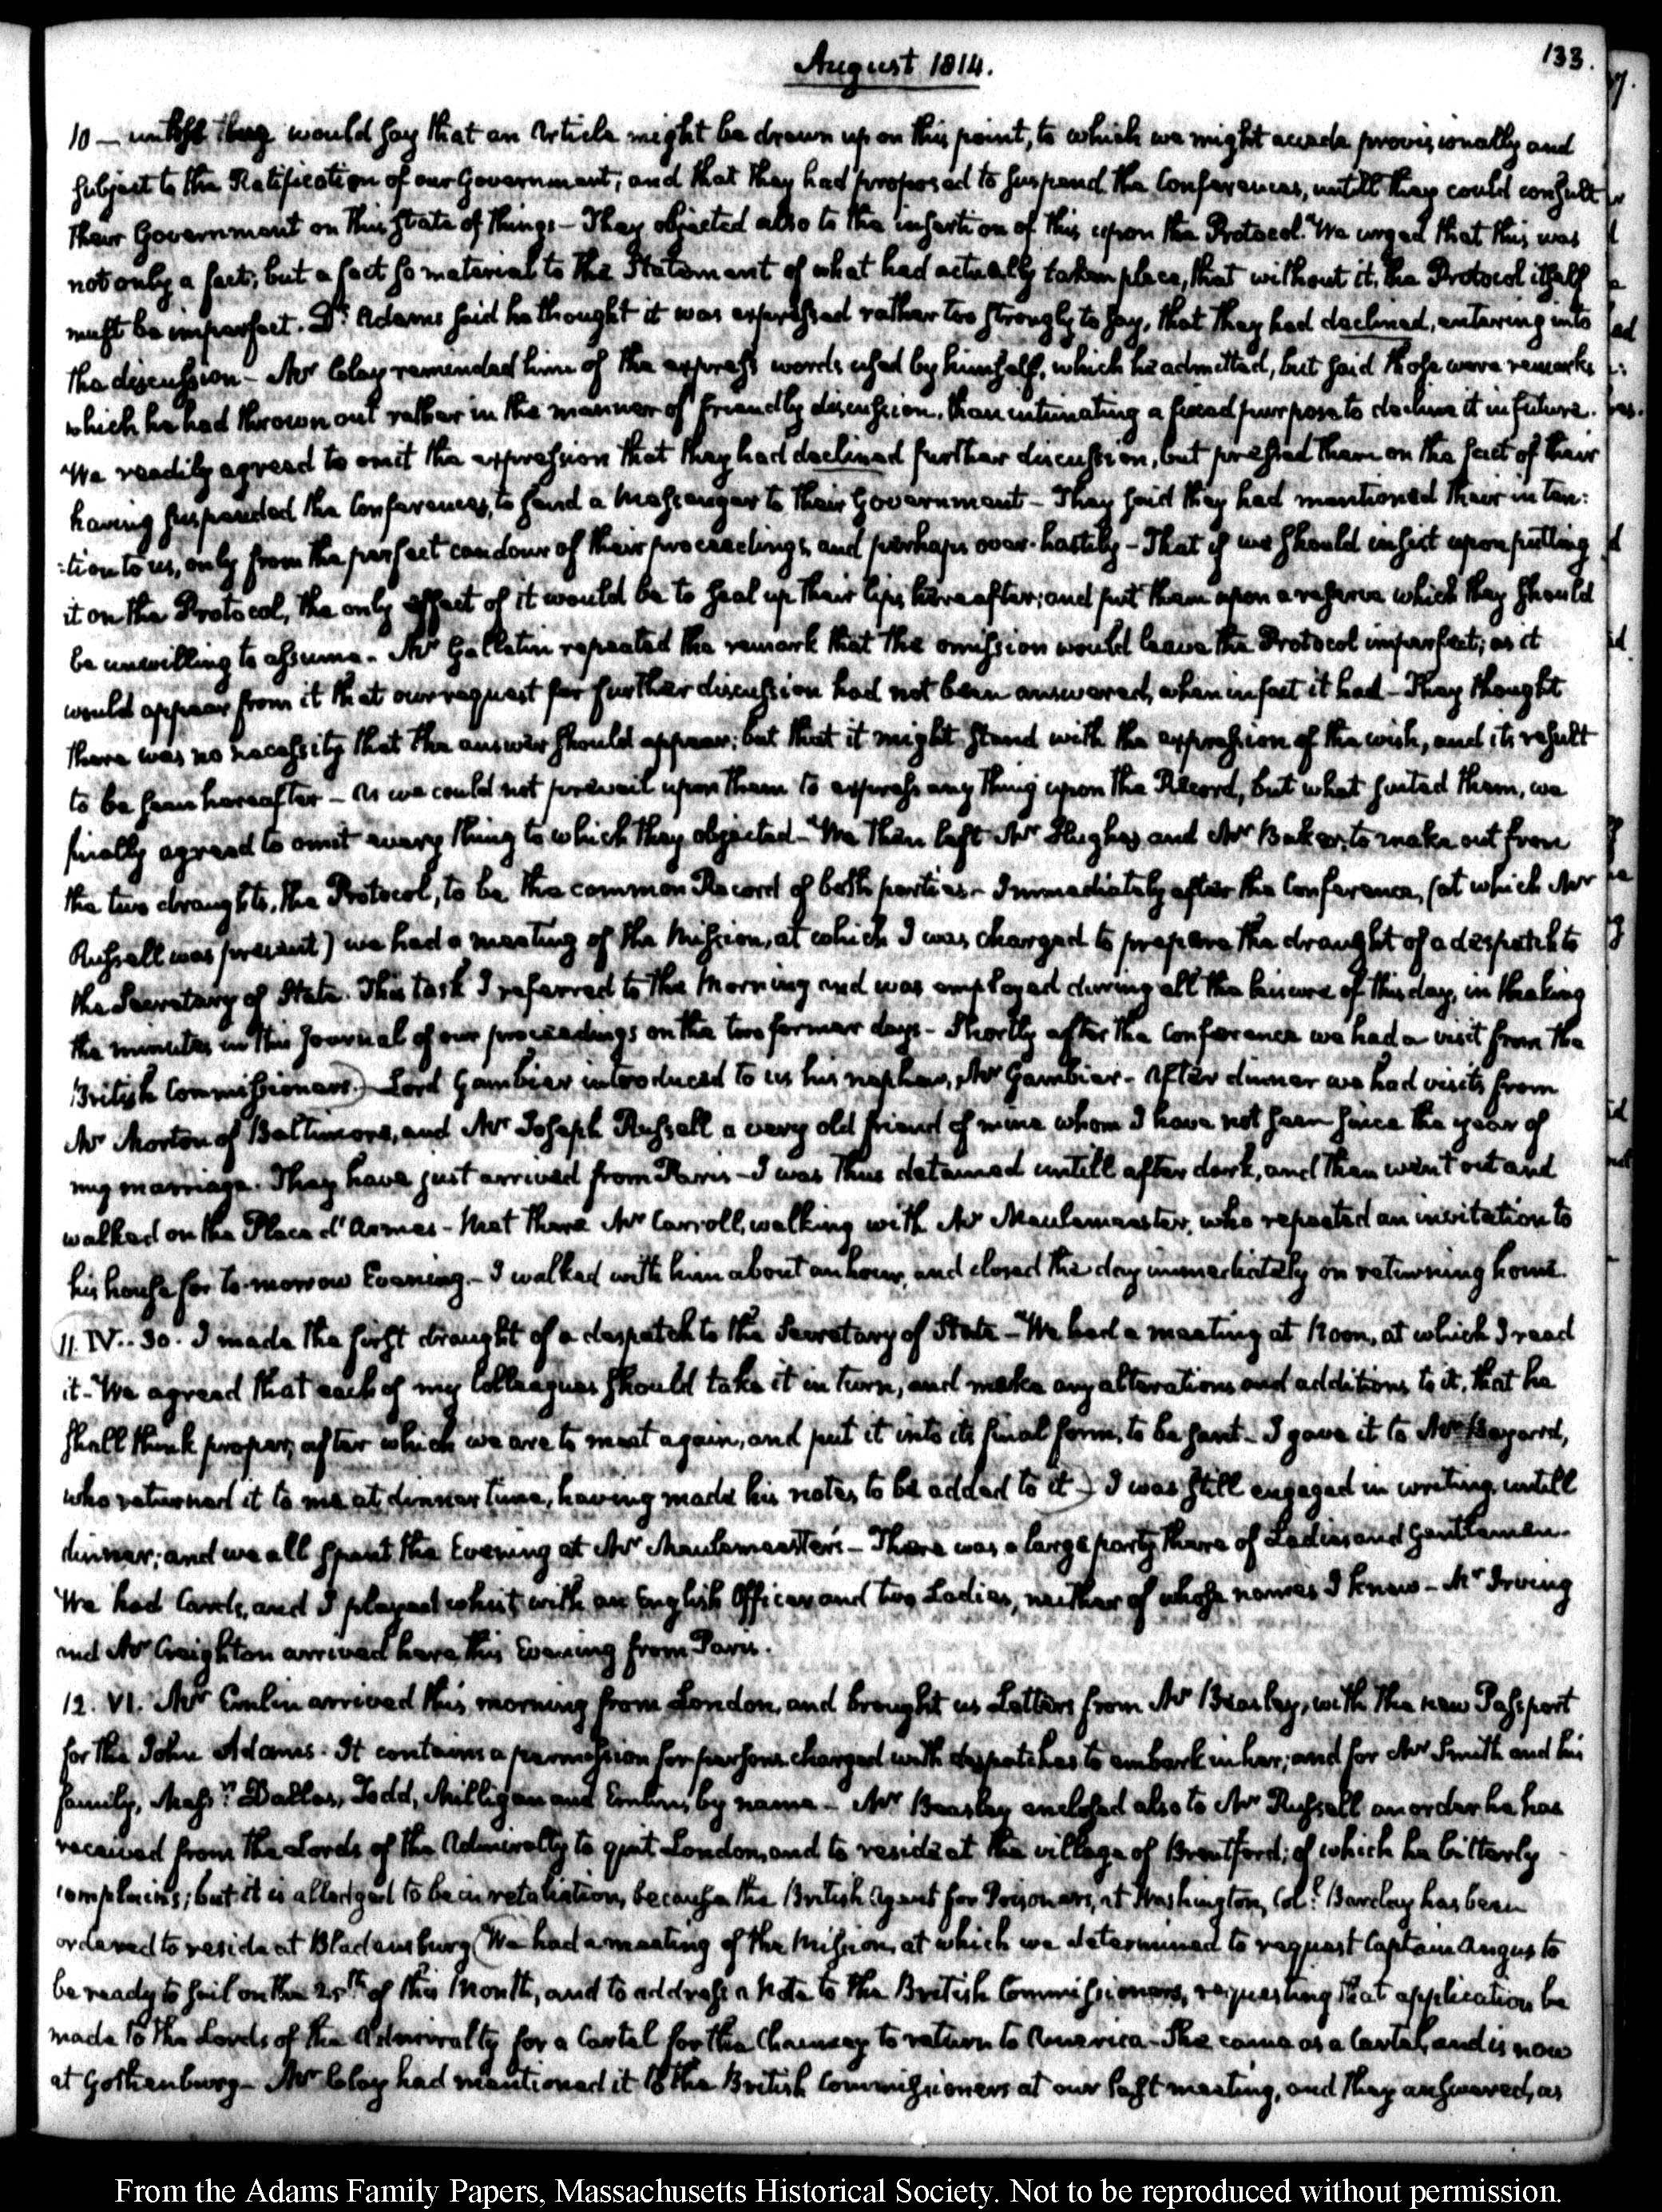 August 1814.
133.
10 — unless they would say that an Article might be drawn up on this point, to which we might accede provisionally and
subject to the Ratification of our Government; and that they had proposed to suspend the Conferences, untill they could consult
their Government on this state of things — They objected also to the insertion of this upon the Protocol. We urged that this was
not only a fact; but a fact so material to the Statement of what had actually taken place, that without it, the Protocol itself
must be imperfect. Dr. Adams said he thought it was expressed rather too strongly to say, that they had declined, entering into
the discussion — Mr Clay reminded him of the express words used by himself, which he admitted, but said those were remarks
which he had thrown out rather in the manner of friendly discussion, than intimating a fixed purpose to decline it in future.
We readily agreed to omit the expression that they had declined further discussion, but pressed them on the fact of their
having suspended the Conferences, to send a Messenger to their Government — They said they had mentioned their inten:
:tion to us, only from the perfect candour of their proceedings, and perhaps over-hastily — That if we should insist upon putting
it on the Protocol, the only effect of it would be to seal up their lips hereafter; and put them upon a reserve which they should
be unwilling to assume. Mr Gallatin repeated the remark that the omission would leave the Protocol imperfect; as it
would appear from it that our request for further discussion had not been answered, when in fact it had — They thought
there was no necessity that the answer should appear; but that it might stand with the expression of the wish, and its result
to be seen hereafter — As we could not prevail upon them to express any thing upon the Record, but what suited them, we
finally agreed to omit every thing to which they objected — We then left Mr Hughes and Mr Baker, to make out from
the two draughts, the Protocol, to be the common Record of both parties — Immediately after the Conference, (at which Mr
Russell was present) we had a meeting of the Mission, at which I was charged to prepare the draught of a despatch to
the Secretary of State. This task I referred to the Morning and was employed during all the leisure of this day, in
the minutes in this Journal of our proceedings on the two former days — Shortly after the Conference we had a visit from the
British Commissioners.) Lord Gambier introduced to us his nephew, Mr Gambier — After dinner we had visits from
Mr Morton of Baltimore, and Mr Joseph Russell a very old friend of mine whom I have not seen since the year of
my marriage. They have just arrived from Paris — I was thus detained untill after dark, and then went out and
walked on the Place d'Armes — Met there Mr Carroll, walking with Mr Meulemeester, who repeated an invitation to
his house for to-morrow Evening. — I walked with him about an hour, and closed the day immediately on returning home.
11. IV..30. I made the first draught of a despatch to the Secretary of State — We had a meeting at Noon, at which I read
it — We agreed that each of my Colleagues should take it in turn, and make any alterations and additions to it, that he
shall think proper, after which we are to meet again, and put it into its final form, to be sent — I gave it to Mr Bayard,
who returned it to me at dinner time, having made his notes, to be added to it) I was still engaged in writing untill
dinner; and we all spent the Evening at Mr Meulemeester's — There was a large party there of Ladies and Gentlemen.
We had Cards, and I played whist with an English Officer and two Ladies, neither of whose names I knew — Mr Irving
and Mr Creighton arrived here this Evening from Paris.
12. VI. Mr Emlin arrived this morning from London, and brought us Letters from Mr Beasley, with the new Passport
for the John Adams. It contains a permission for persons charged with despatches to embark in her; and for Mr Smith and his
family, Messrs. Dallas, Todd, Milligan and Emlin, by name — Mr Beasley enclosed also to Mr Russell an order he has
received from the Lords of the Admiralty to quit London, and to reside at the village of Brentford; of which he bitterly
complains; but it is alledged to be in retaliation, because the British Agent for Prisoners, at Washington, Coll. Barclay has been
ordered to reside at Bladensburg (We had a meeting of the Mission, at which we determined to request Captain Angus to
be ready to sail on the 25th of this Month, and to address a Note to the British Commissioners, requesting that application be
made to the Lords of the Admiralty for a Cartel for the Chauncey to return to America — She came as a Cartel, and is now
at Gothenburg — Mr Clay had mentioned it to the British Commissioners at our last meeting, and they answered, as
From the Adams Family Papers, Massachusetts Historical Society. Not to be reproduced without permission.